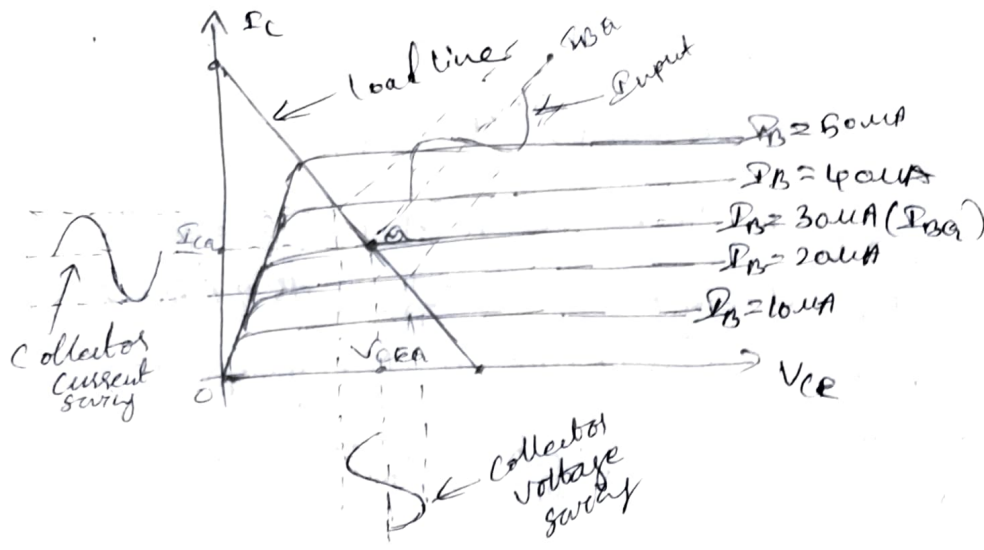 IC
Load line
IBQ
Input
IB = 50uA
IB = 40uA
IB = 30uA (IBQ)
IB = 20uA
IB = 10uA
ICQ
Q
Collector
current
swing
VCEQ
O
VCE
Collector
voltage
swing